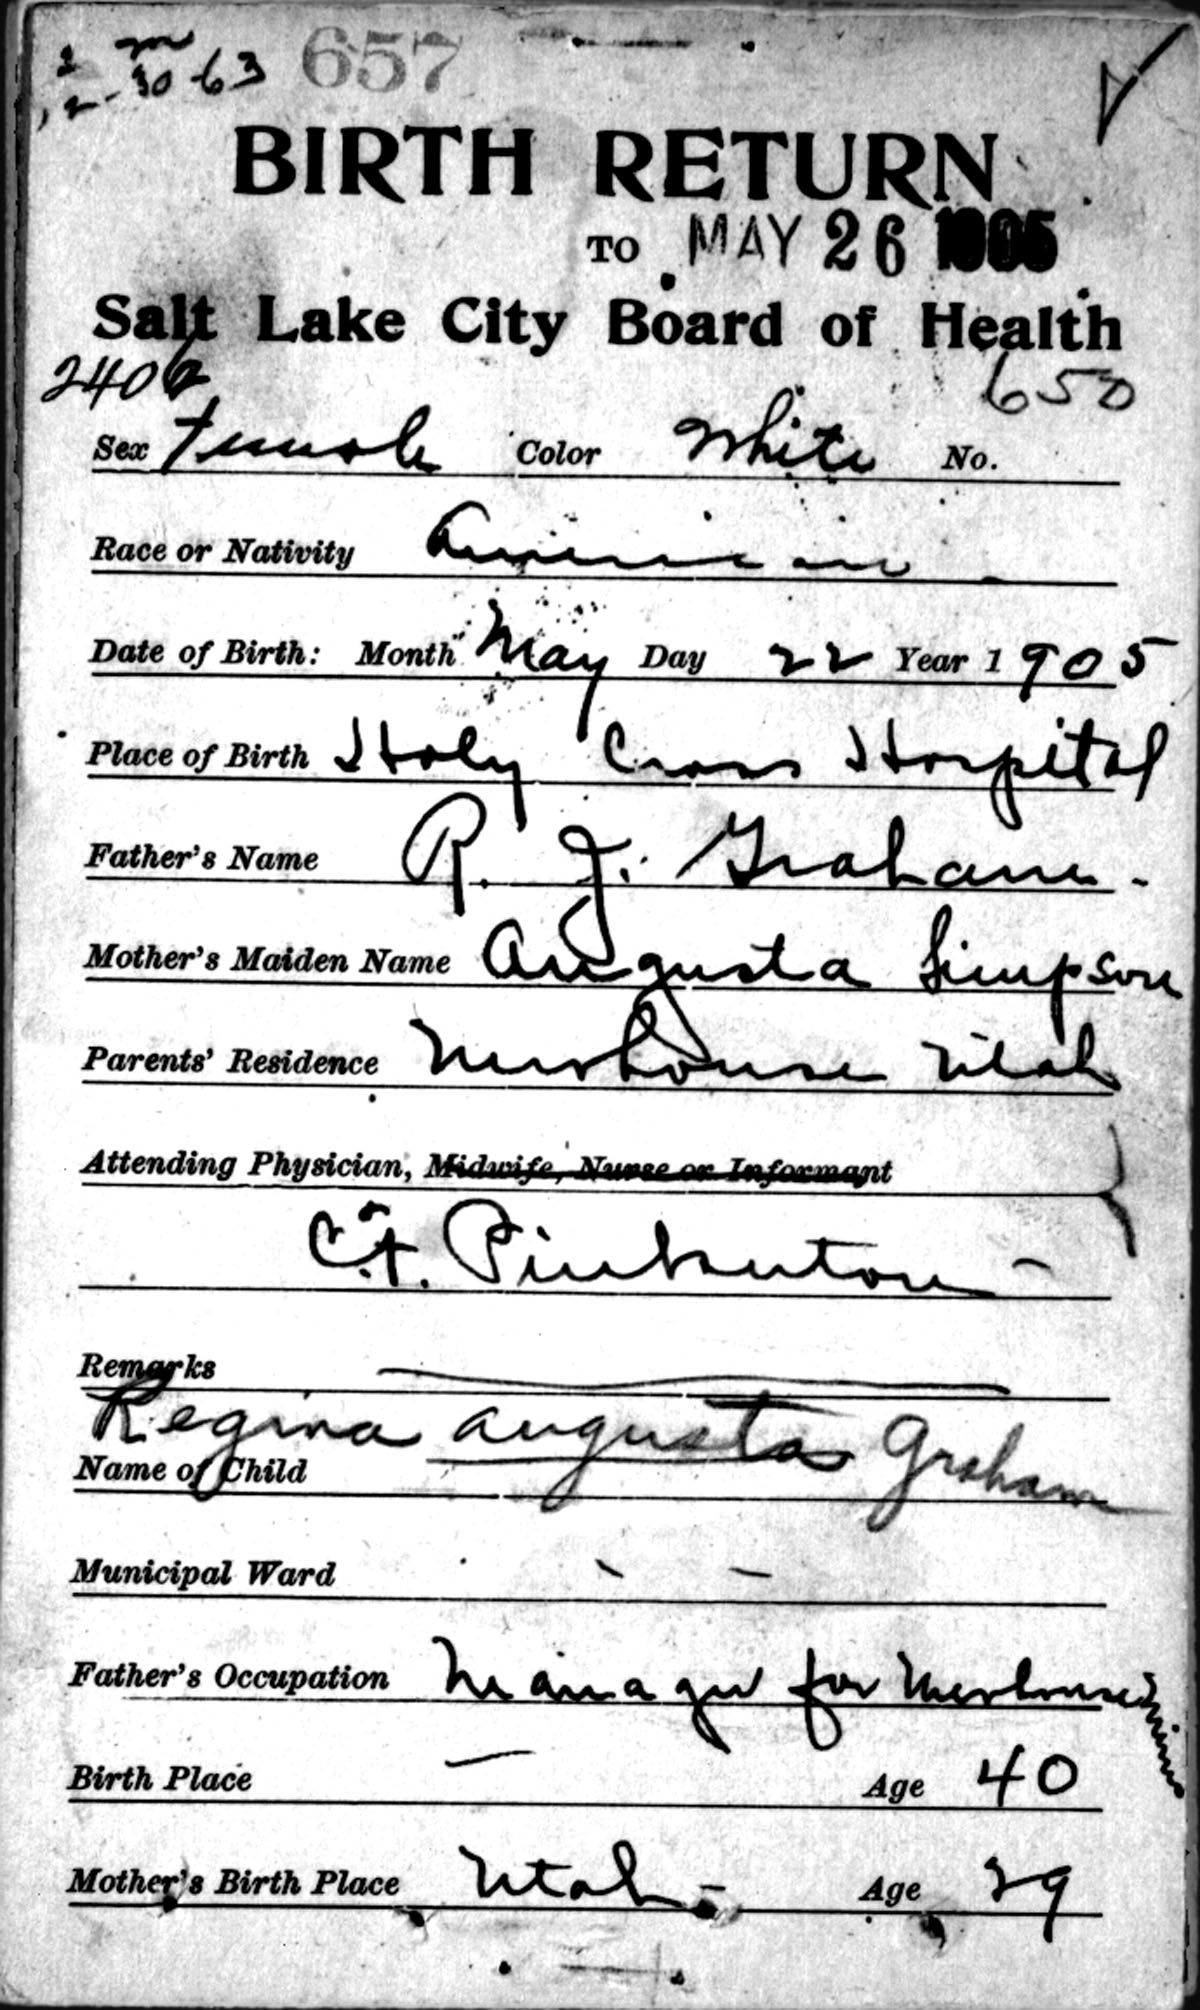 2-30-63 657
BIRTH RETURN
TO MAY 26 1905
Salt Lake City Board of Health
2402 650
Sex Female Color White No.
Race or Nativity American
Date of Birth: Month May Day 22 Year 1905
Place of Birth Holy Cross Hospital
Father's Name R. J. Graham
Mother's Maiden Name Augusta Simpson
Parents' Residence Newhouse Utah
Attending Physician, Midwife, Nurse or Informant
C. F. Pinkerton
Remarks
Regina Augusta Graham
Name of Child
Municipal Ward
Father's Occupation Manager for Newhouse Mine
Birth Place Age 40
Mother's Birth Place Utah Age 29